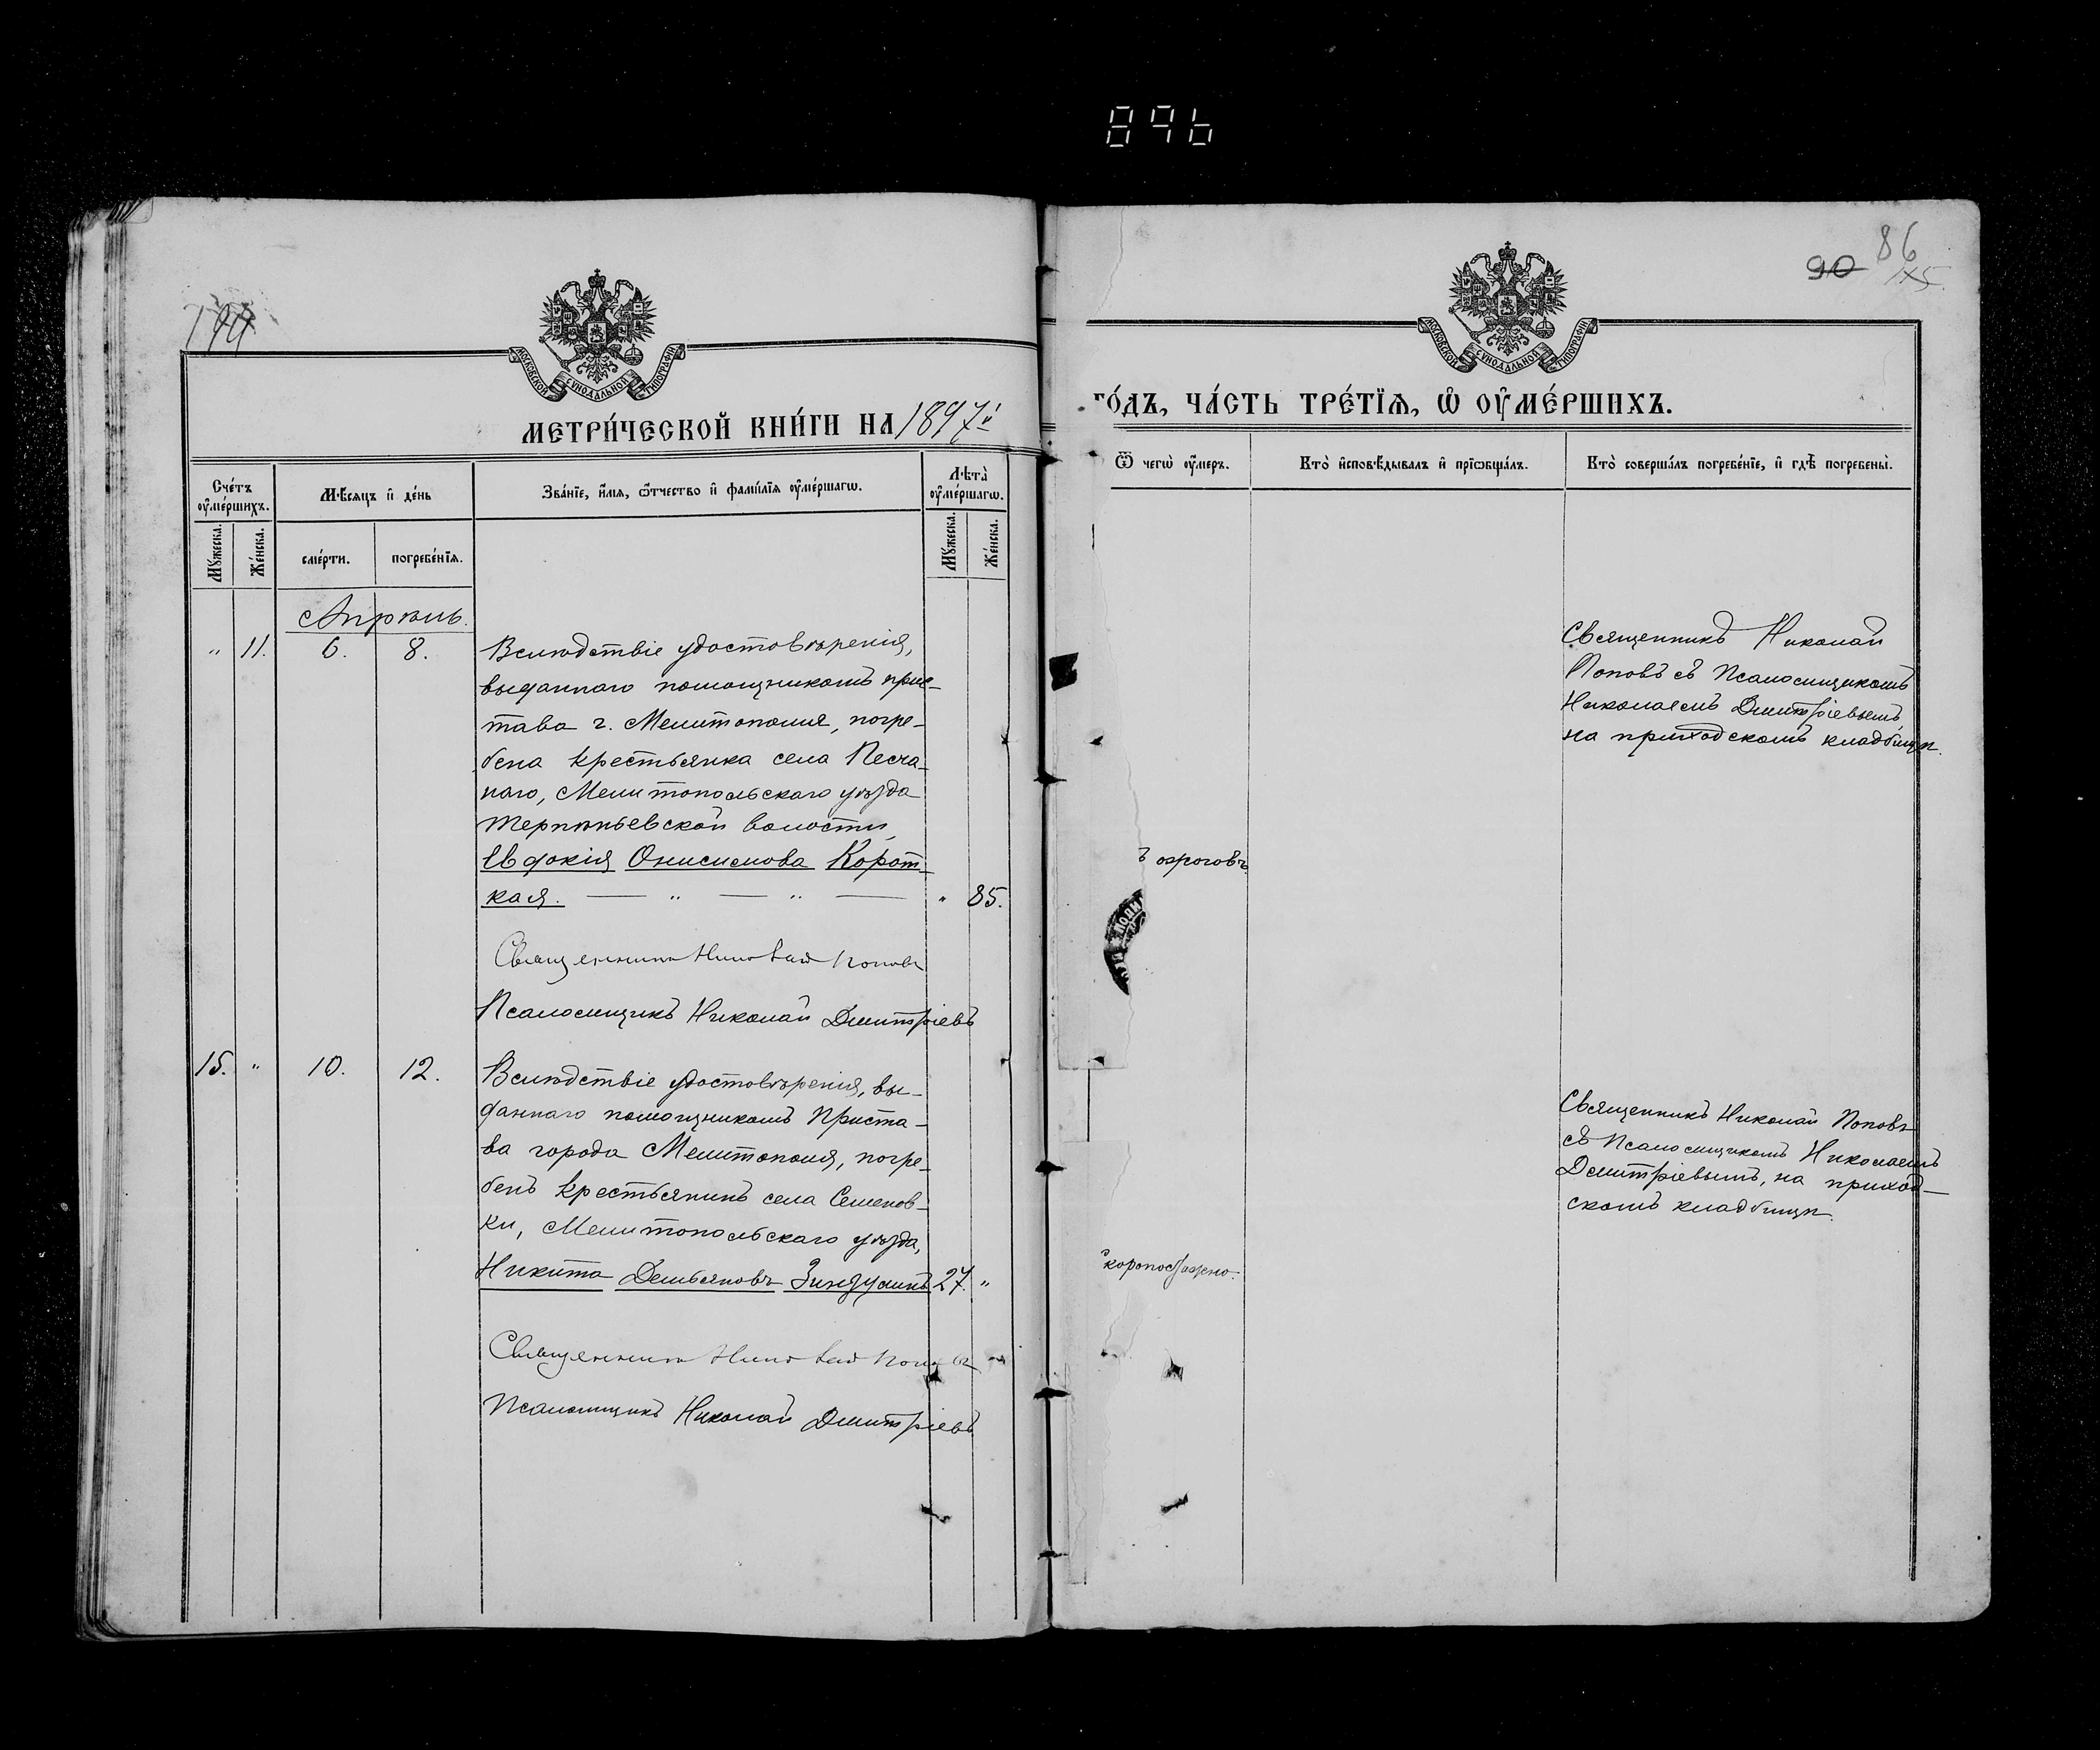 896
МОСКОВСКОЙ СѴНОДАЛЬНОЙ ТИПОГРАФІИ
МЕТРИ́ЧЕСКОЙ КНИ́ГИ НА 1897й
Сче́тъ ᲂу҆ме́ршихъ.
Мѣ́сяцъ и҆ де́нь
Зва́нїе, и҆́мѧ, ѻ҆́тчество и҆ фами́лїѧ ᲂу҆ме́ршагѡ.
Лѣ́та ᲂу҆ме́ршагѡ.
Мꙋ́жеска.
Же́нска.
сме́рти.
погребе́нїѧ.
Мꙋ́жеска.
Же́нска.
Апрѣль.
" 11. 6. 8. Вслѣдствіе удостовѣренія,
выданнаго помощникомъ прис-
тава г. Мелитополя, погре-
бена крестьянка села Песча-
наго, Мелитопольскаго уѣзда
Терпѣньевской волости,
Евдокія Онисимова Корот-
кая. — " — " — " 85.
Священникъ Николай Поповъ
Псаломщикъ Николай Дмитріевъ
15. " 10. 12. Вслѣдствіе удостовѣренія, вы-
даннаго помощникомъ Приста-
ва города Мелитополя, погре-
бенъ крестьянинъ села Семенов-
ки, Мелитопольскаго уѣзда,
Никита Демьяновъ 27. "
Священникъ Николай Поповъ
Псаломщикъ Николай Дмитріевъ
90 86
МОСКОВСКОЙ СѴНОДАЛЬНОЙ ТИПОГРАФІИ
го́дъ, ча́сть тре́тїѧ, ѡ҆ ᲂу҆ме́ршихъ.
Ѿ чегѡ̀ ᲂу҆́меръ.
Кто̀ и҆сповѣ́дывалъ и҆ прїѡбща́лъ.
Кто̀ соверша́лъ погребе́нїе, и҆ гдѣ̀ погребены̀.
Священникъ Николай
Поповъ съ Псаломщикомъ
Николаемъ Дмитріевымъ,
на приходскомъ кладбищѣ.
Священникъ Николай Поповъ
съ Псаломщикомъ Николаемъ
Дмитріевымъ, на приход-
скомъ кладбищѣ.
скоропостижно.